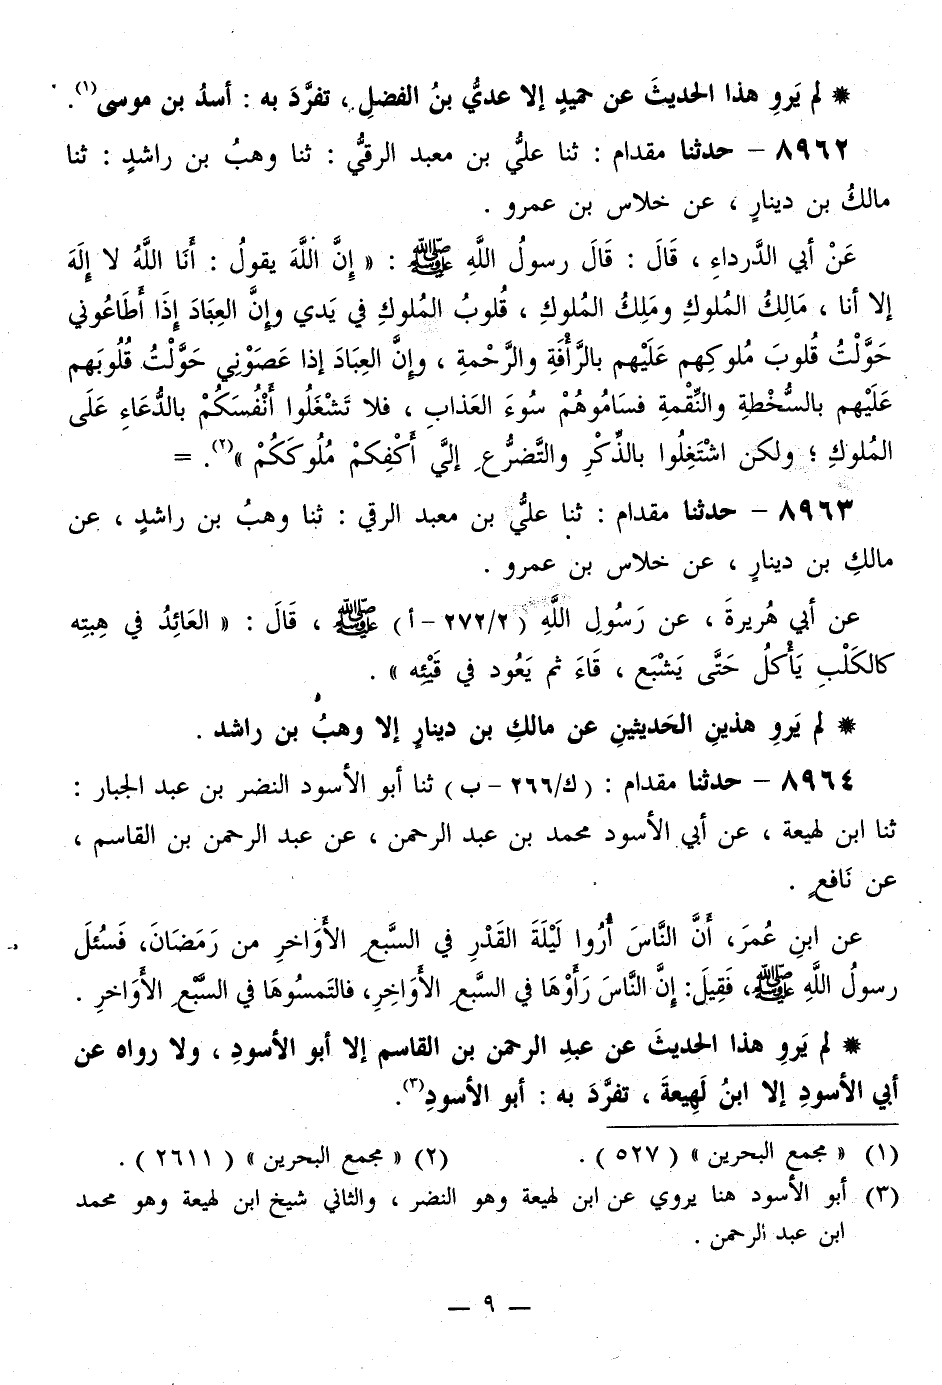 * لم يَروِ هذا الحديثَ عن حميدٍ إلا عديُّ بنُ الفضلِ ، تفرَّدَ به : أسدُ بن موسى(١).
٨٩٦٢ – حدثنا مقدام : ثنا عليُّ بن معبد الرقيُّ : ثنا وهبُ بن راشدٍ : ثنا
مالكُ بن دينارٍ ، عن خلاس بن عمرو .
عَنْ أبي الدَّرداءِ ، قَالَ : قَالَ رسولُ اللَّهِ ﷺ : « إِنَّ اللَّهَ يقولُ : أَنَا اللَّهُ لا إِلَهَ
إلا أنا ، مَالِكُ المُلوكِ ومَلِكُ المُلوكِ ، قُلوبُ المُلوكِ في يَدي وإِنَّ العِبَادَ إِذَا أَطَاعُوني
حَوَّلْتُ قُلوبَ مُلوكِهم عَلَيْهم بالرَّأْفَةِ والرَّحْمةِ ، وإِنَّ العِبَادَ إذا عَصَوْنِي حَوَّلْتُ قُلُوبَهم
عَلَيْهم بالسُّخْطةِ والنِّقْمةِ فسَامُوهُمْ سُوءَ العَذابِ ، فلا تَشْغَلُوا أَنْفُسَكُمْ بالدُّعَاءِ عَلَى
المُلوكِ ؛ ولكن اشْتَغِلُوا بالذِّكْرِ والتَّضرُّعِ إليَّ أَكْفِكمْ مُلُوكَكُمْ »(٢). =
٨٩٦٣ – حدثنا مقدام : ثنا عليُّ بن معبد الرقي : ثنا وهبُ بن راشدٍ ، عن
مالكِ بن دينارٍ ، عن خلاس بن عمرو .
عن أبي هُريرةَ ، عن رَسُولِ اللَّهِ (٢٧٢/٢ – أ) ﷺ ، قَالَ : « العَائِدُ في هِبتِه
كالكَلْبِ يَأْكلُ حَتَّى يَشْبَع ، قَاءَ ثم يَعُود في قَيْئِه » .
* لم يَروِ هذينِ الحَديثينِ عن مالكِ بن دينارٍ إلا وهبُ بن راشد .
٨٩٦٤ – حدثنا مقدام : (ك/٢٦٦ – ب) ثنا أبو الأسود النضر بن عبد الجبار :
ثنا ابن لهيعة ، عن أبي الأسود محمد بن عبد الرحمن ، عن عبد الرحمن بن القاسم ،
عن نَافعٍ .
عن ابنِ عُمرَ، أَنَّ النَّاسَ أُرُوا لَيْلَةَ القَدْرِ في السَّبعِ الأَوَاخرِ من رَمَضَانَ، فَسُئلَ
رسولُ اللَّهِ ﷺ، فَقِيلَ: إِنَّ النَّاسَ رَأَوْهَا في السَّبعِ الأَوَاخِرِ، فالتَمسُوهَا في السَّبْعِ الأَوَاخرِ .
* لم يَروِ هذا الحديثَ عن عبدِ الرحمن بن القاسم إلا أبو الأسودِ ، ولا رواه عن
أبي الأسودِ إلا ابنُ لَهِيعةَ ، تفرَّدَ به : أبو الأسودِ(٣).
(١) « مجمع البحرين » (٥٢٧) . (٢) « مجمع البحرين » (٢٦١١) .
(٣) أبو الأسود هنا يروي عن ابن لهيعة وهو النضر ، والثاني شيخ ابن لهيعة وهو محمد
ابن عبد الرحمن .
– ٩ –